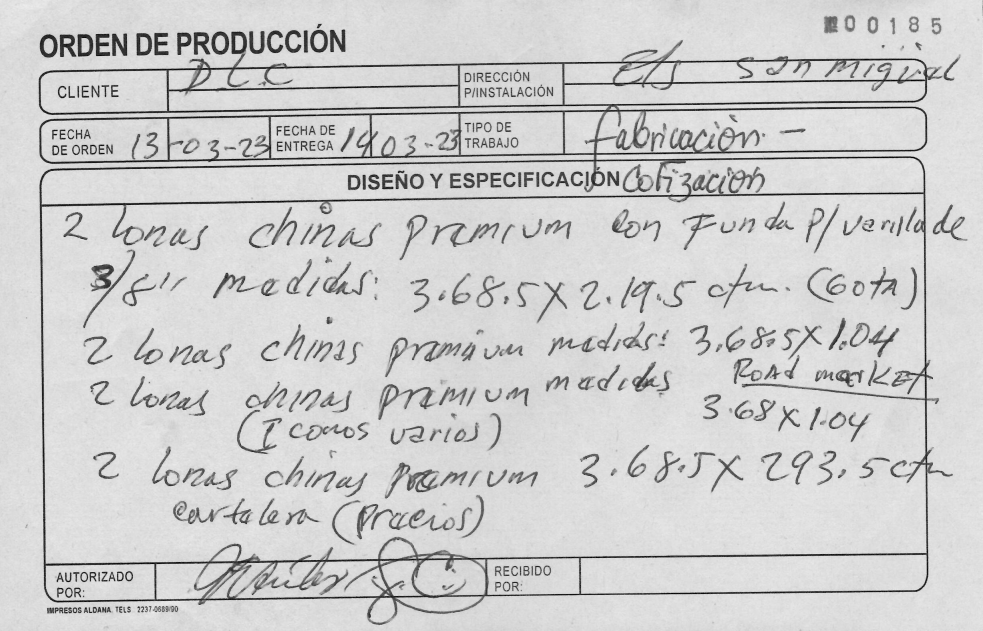 № 00185
ORDEN DE PRODUCCIÓN
CLIENTE DLC DIRECCIÓN P/INSTALACIÓN E/s San miguel
FECHA DE ORDEN 13-03-23 FECHA DE ENTREGA 14 03-23 TIPO DE TRABAJO fabricación -
DISEÑO Y ESPECIFICACIÓN Cotización
2 lonas chinas premium con Funda p/varilla de
3/8" medidas: 3.68.5 X 2.19.5 ctm. (Gota)
2 lonas chinas premium medidas: 3.68.5 X 1.04
Road market
2 lonas chinas premium medidas 3.68 X 1.04
(Iconos varios)
2 lonas chinas premium 3.68.5 X 293.5 ctm
cartelera (precios)
AUTORIZADO POR: RECIBIDO POR:
IMPRESOS ALDANA. TELS. 2237-0689/90